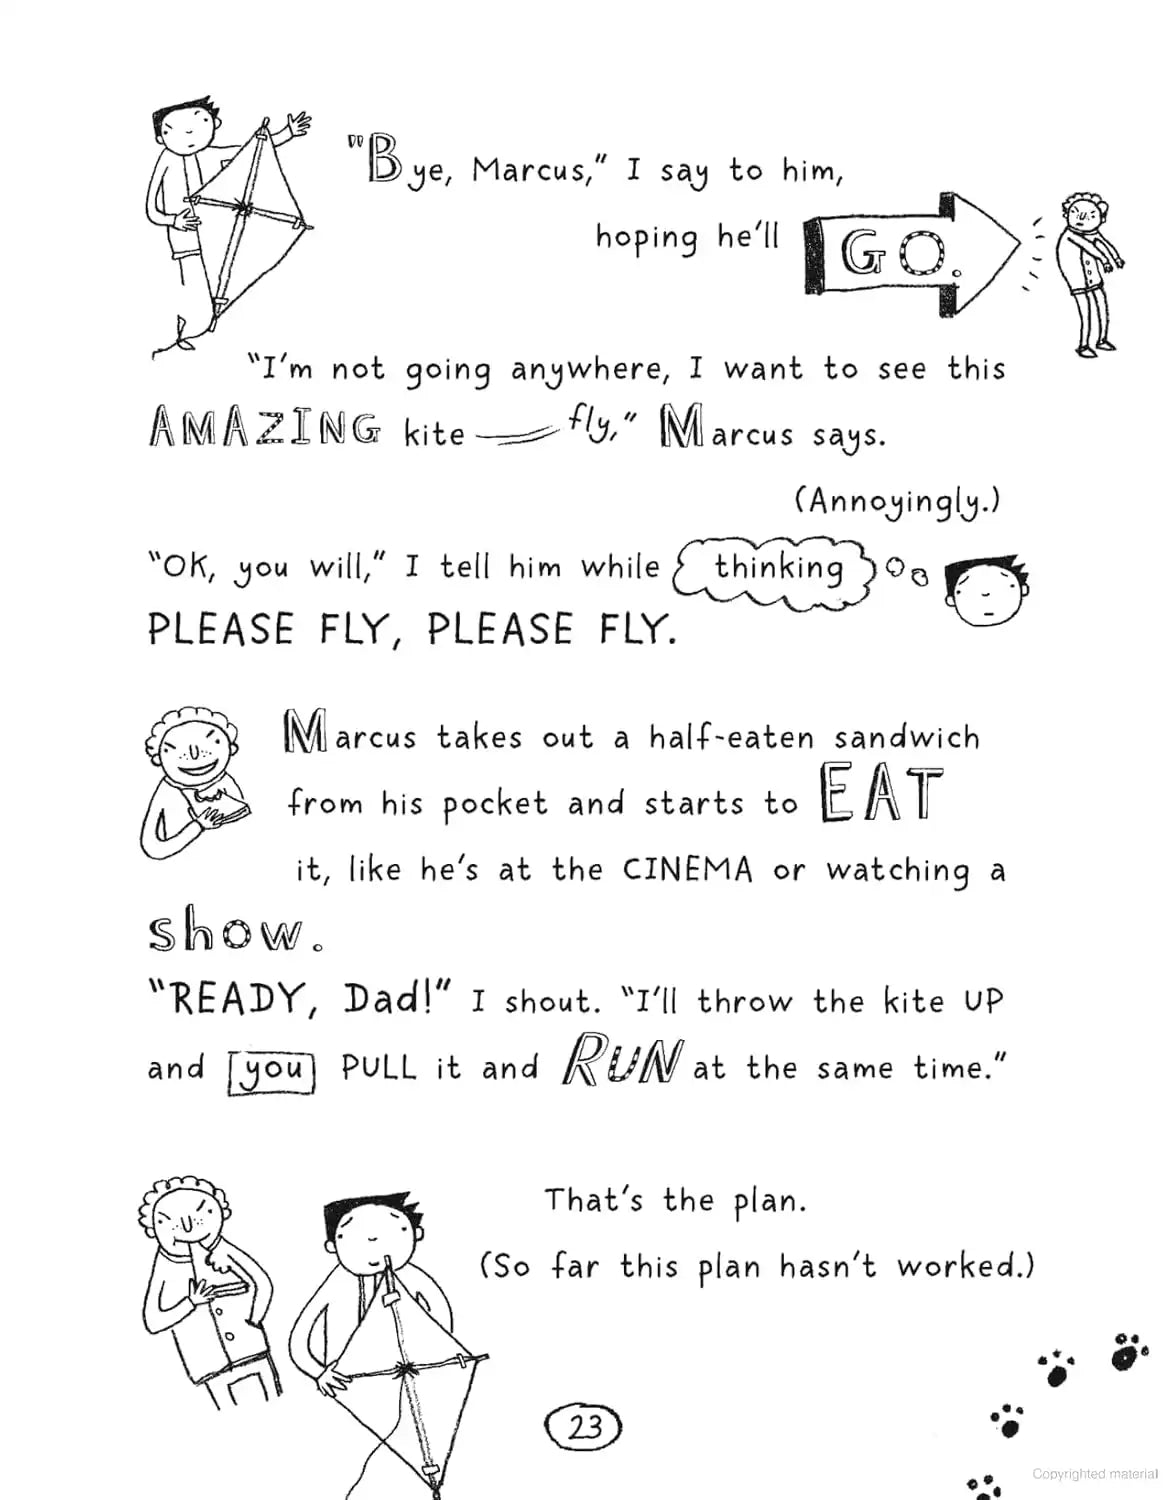 "Bye, Marcus," I say to him,
hoping he'll GO.
"I'm not going anywhere, I want to see this
AMAZING kite fly," Marcus says.
(Annoyingly.)
"OK, you will," I tell him while thinking
PLEASE FLY, PLEASE FLY.
Marcus takes out a half-eaten sandwich
from his pocket and starts to EAT
it, like he's at the CINEMA or watching a
show.
"READY, Dad!" I shout. "I'll throw the kite UP
and you PULL it and RUN at the same time."
That's the plan.
(So far this plan hasn't worked.)
23
Copyrighted material